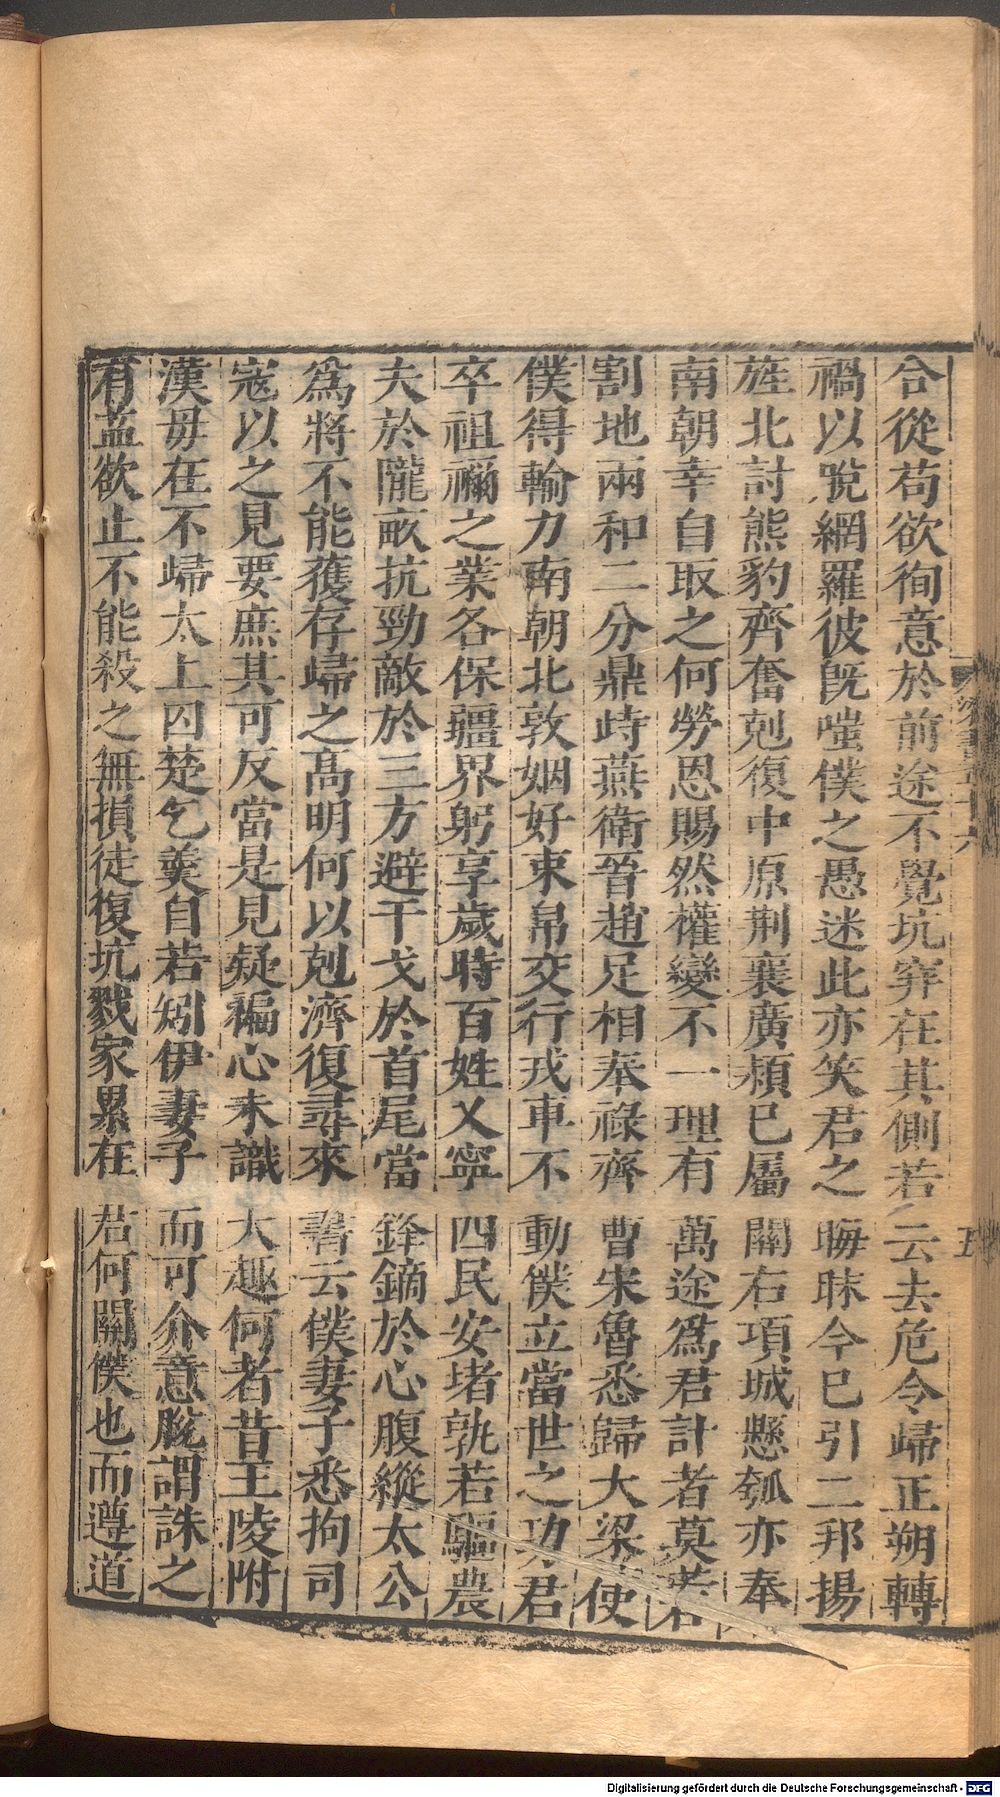 合從苟欲徇意於前途不覺坑穽在其側若云去危令歸正朔轉
禍以脫網羅彼旣嗤僕之愚迷此亦笑君之晦昧今已引二邦揚
旌北討熊豹齊奮剋復中原荆襄廣潁已屬關右項城懸瓠亦奉
南朝幸自取之何勞恩賜然權變不一理有萬途爲君計者莫若
割地兩和二分鼎峙燕衛晉趙足相奉祿齊曹宋魯悉歸大梁使
僕得輸力南朝北敦姻好束帛交行戎車不動僕立當世之功君
卒祖禰之業各保疆界躬享歲時百姓乂寧四民安堵孰若驅農
夫於隴畝抗勁敵於三方避干戈於首尾當鋒鏑於心腹縱太公
爲將不能獲存歸之高明何以剋濟復尋來書云僕妻子悉拘司
寇以之見要庶其可反當是見疑褊心未識大趣何者昔王陵附
漢母在不歸太上囚楚乞羹自若矧伊妻子而可介意脫謂誅之
有益欲止不能殺之無損徒復坑戮家累在君何關僕也而遵道
Digitalisierung gefördert durch die Deutsche Forschungsgemeinschaft - DFG